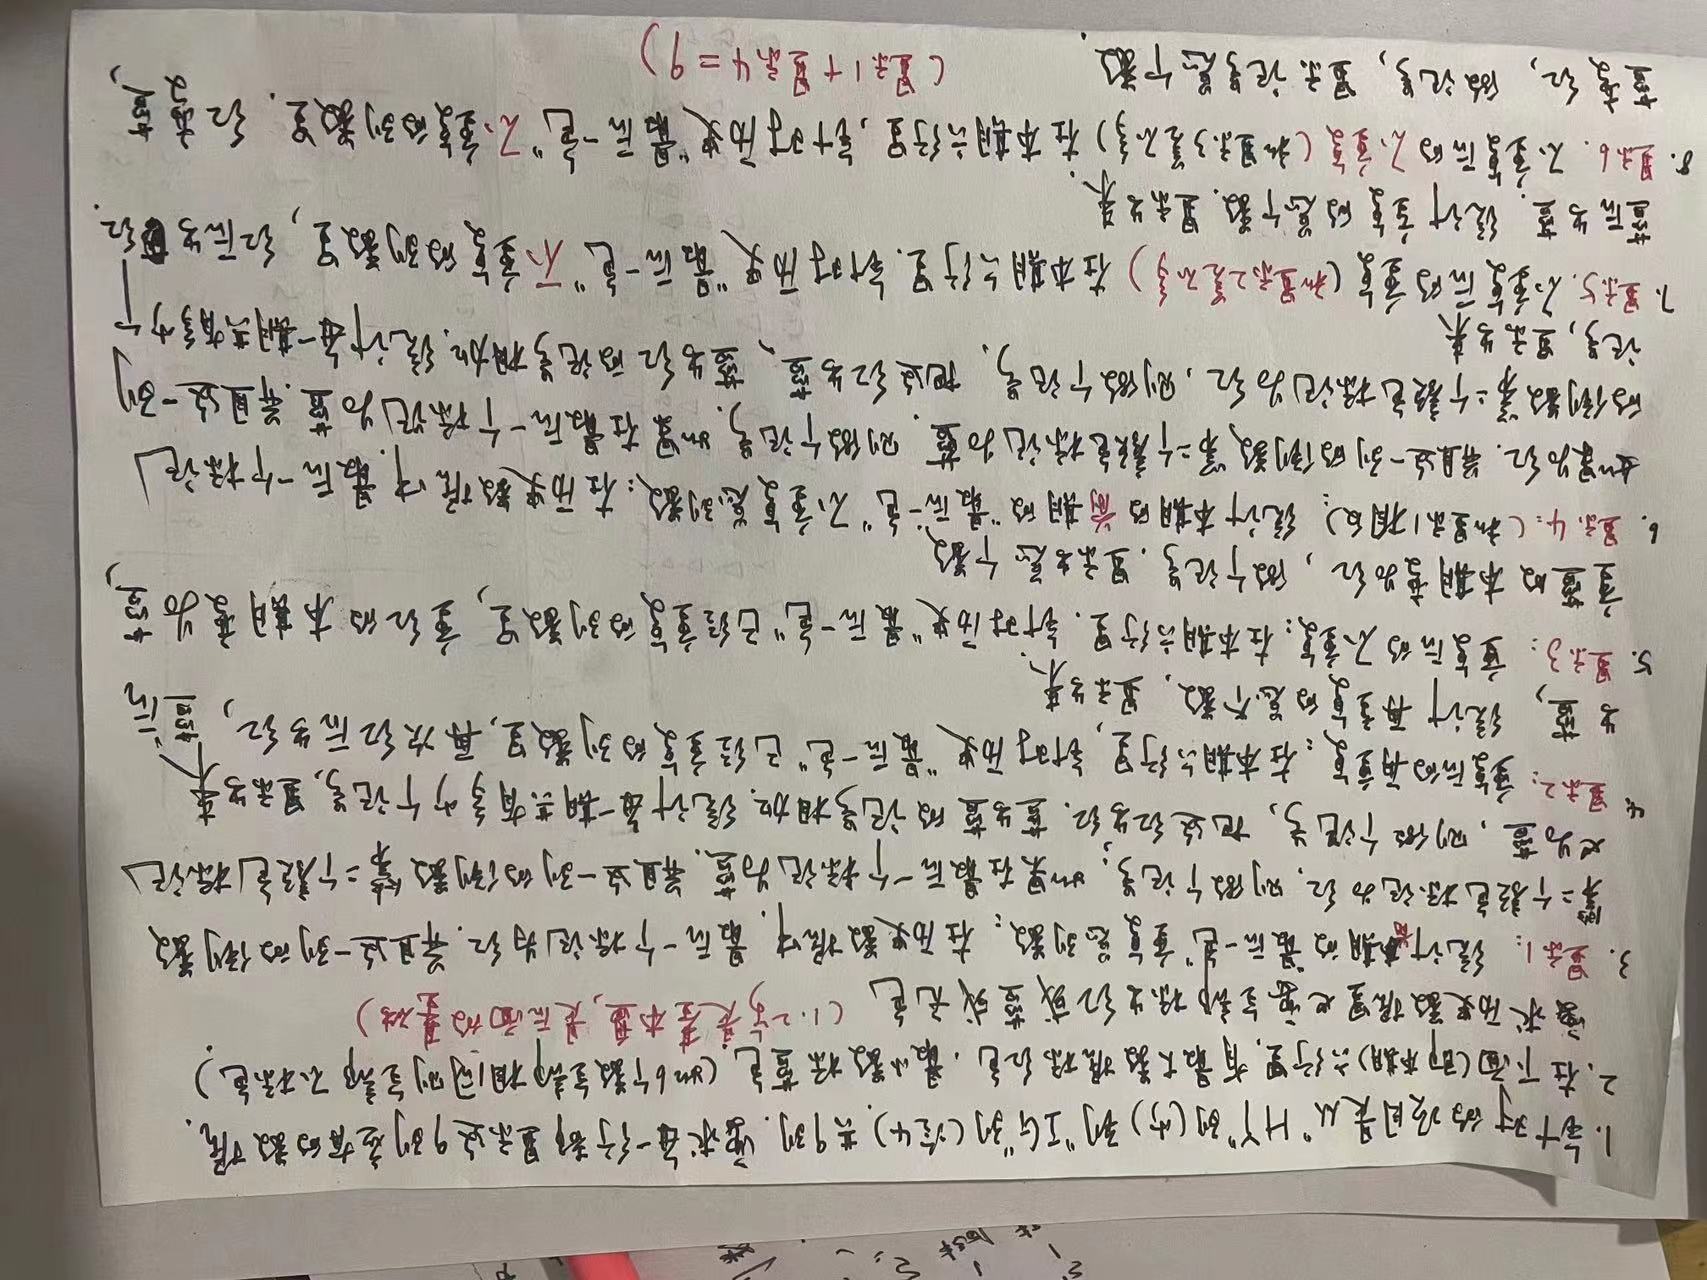 1. 针对的项目是从"HY"列(少)到"IG"列(冷4).共9列.要求每一行都显示这9列应有的数据.
2. 在下面(即本期)六行里,有最大数据标红色.最小数标蓝色.(如6个数全部相同则全部不标色)
要求历史数据里也要全部标出红或蓝或无色 (1.2步是基本盘,是后面的基础)
3. 显示1: 统计前期的"最后一色"重复总列数: 在历史数据中,最后一个标记为红.并且这一列的倒数
第二个颜色标记为红,则做个记号;如果在最后一个标记为蓝.并且这一列的倒数第二个颜色标记
也为蓝,则做个记号,把这红出红.蓝出蓝的记号相加.统计每一期共有多少个记号,显示出来
4. 显示2: 重复后的再重复: 在本期六行里,针对历史"最后一色"已经重复的列数里,再次红后出红,蓝后
出蓝, 统计再重复的总个数,显示出来.
5. 显示3: 重复后的不重复: 在本期六行里.针对历史"最后一色"已经重复的列数里,重红的本期变为蓝,
重蓝的本期变为红,做个记号.显示出总个数.
6. 显示4:(和显示1相反): 统计本期的前期的"最后一色"不重复总列数: 在历史数据中,最后一个标记
如果为红.并且这一列的倒数第二个颜色标记为蓝,则做个记号.如果在最后一个标记为蓝.并且这一列
的倒数第二个颜色标记为红,则做个记号. 把这红出蓝、蓝出红的记号相加.统计每一期共有多少个
记号,显示出来
7. 显示5. 不重复后的重复(和显示2差不多) 在本期六行里.针对历史"最后一色"不重复的列数里,红后出红.
蓝后出蓝.统计重复的总个数.显示出来.
8. 显示6. 不重复后的不重复(和显示3差不多)在本期六行里,针对历史"最后一色"不重复的列数里.红变蓝,
蓝变红,做记号,显示记号总个数. (显示1+显示4=9)